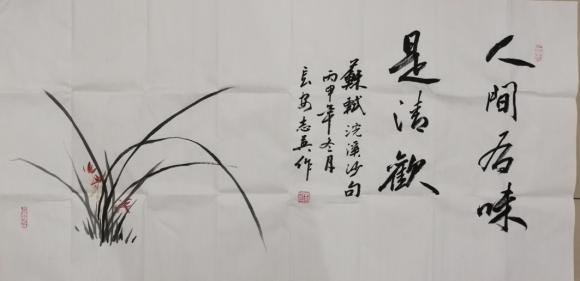 人間有味
是清歡
蘇軾浣溪沙句
丙申年冬月
長安志英作